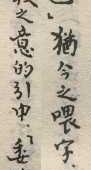 」猶今之喂字.
之意的引申.「委